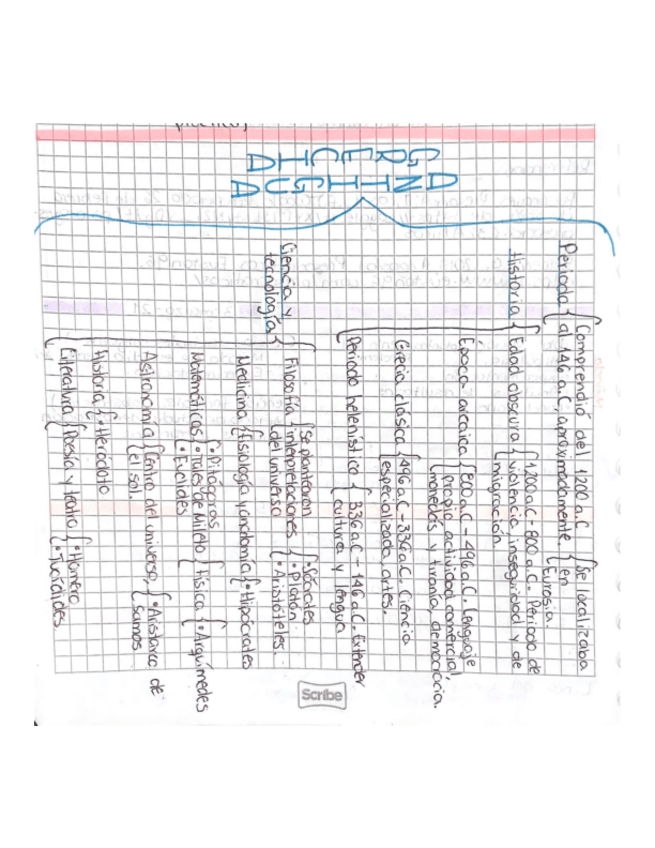 ANTIGUA
GRECIA
Periodo { Comprendió del 1200 a.C { Se localizaba
al 146 a.C, aproximadamente. en
Eurosia.
Historia { Edad obscura { 1200 a.C - 800 a.C. Periodo de
violencia, inseguridad y de
migración.
Época arcaica { 800 a.C - 496 a.C. Lenguaje
propio, actividad comercial,
monedas y tiranía, democracia.
Grecia clásica { 496 a.C - 336 a.C. Ciencia
especializada, artes.
Periodo helenístico { 336 a.C - 146 a.C. Extender
cultura y lengua
Ciencia y
tecnología { Filosofía { Se plantearon
interpretaciones
del universo { • Sócrates
• Platón
• Aristóteles.
Medicina { fisiología y anatomía { • Hipócrates
Matemáticas { • Pitágoras
• Tales de Mileto
• Euclides { física { • Arquímedes
Astronomía { Centro del universo,
el sol. { • Aristarco de
samos
Historia { • Herodoto
Literatura { Poesía y teatro { • Homero
• Tucídides
Scribe